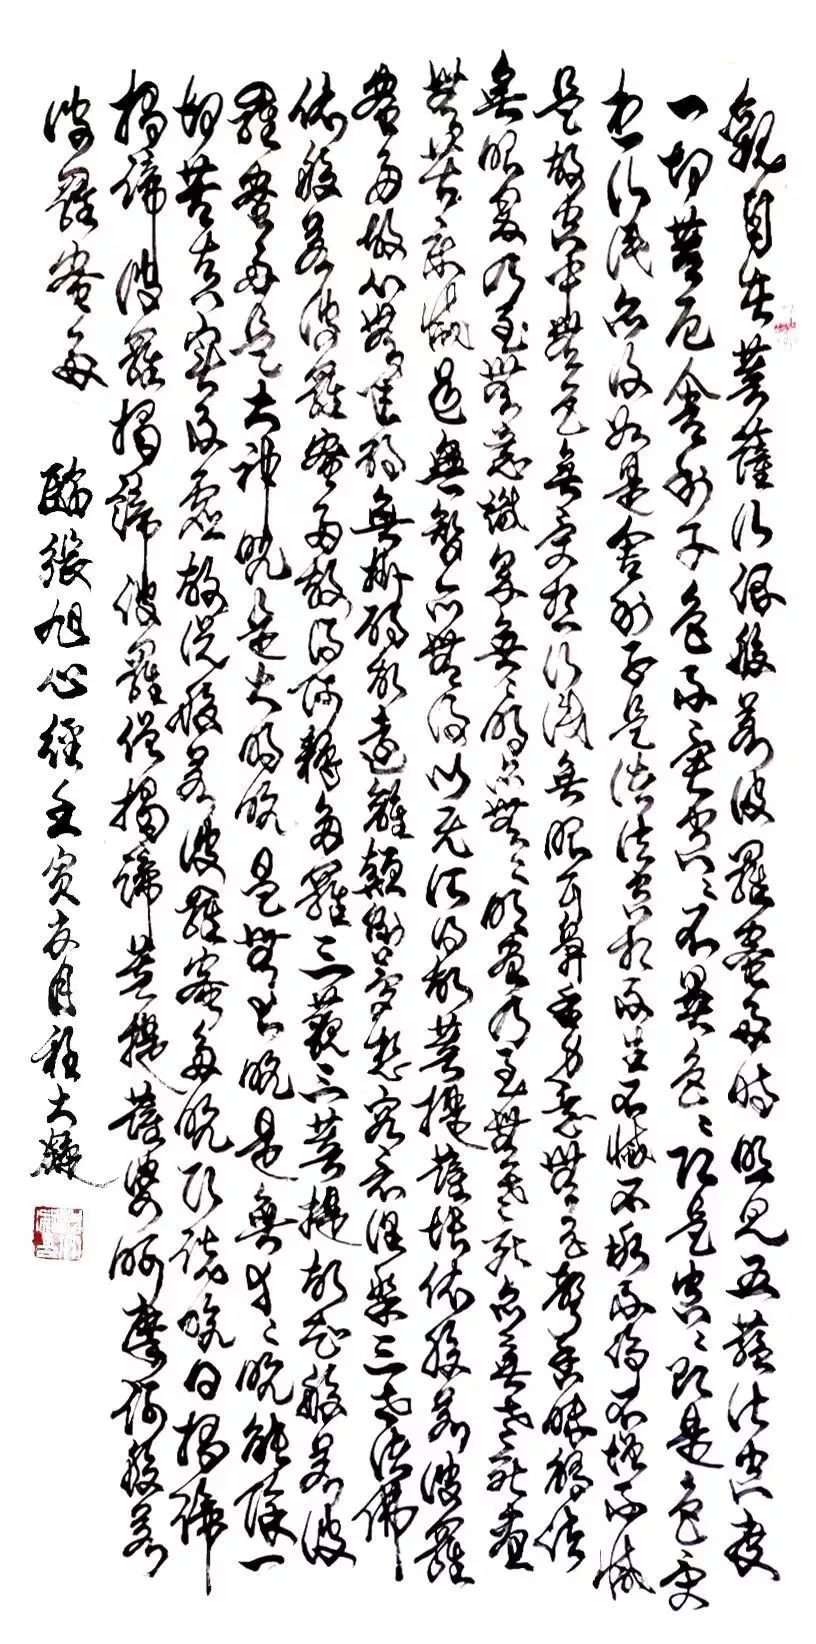 觀自在菩薩行深般若波羅蜜多時照見五蘊皆空度
一切苦厄舍利子色不異空空不異色色即是空空即是色受
想行識亦復如是舍利子是諸法空相不生不滅不垢不淨不增不減
是故空中無色無受想行識無眼耳鼻舌身意無色聲香味觸法
無眼界乃至無意識界無無明亦無無明盡乃至無老死亦無老死盡
無苦集滅道無智亦無得以无所得故菩提薩埵依般若波羅
蜜多故心無罣礙無罣礙故遠離顛倒夢想究竟涅槃三世諸佛
依般若波羅蜜多故得阿耨多羅三藐三菩提故知般若波
羅蜜多是大神咒是大明咒是無上咒是無等等咒能除一
切苦真實不虛故說般若波羅蜜多咒即說咒曰揭諦
揭諦波羅揭諦波羅僧揭諦菩提薩婆訶摩訶般若
波羅蜜多
臨張旭心經壬寅月程大